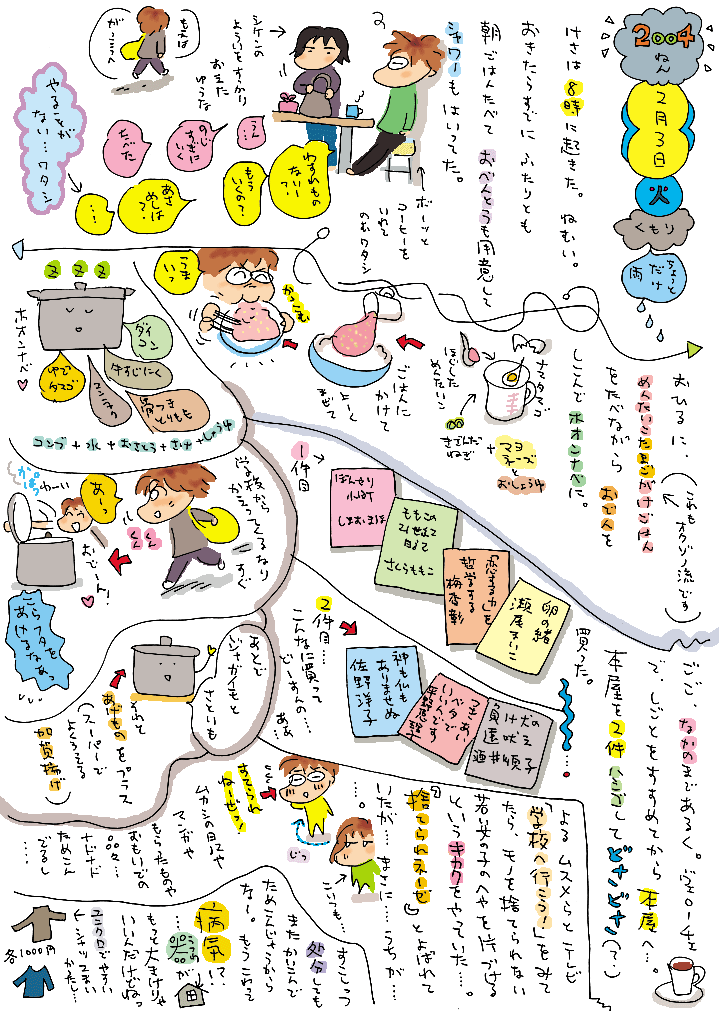 2004
ねん
2月3日
火
くもり
ちょっと
だけ
雨
けさは8時に起きた。ねむい。
おきたらすでに ふたりとも
朝ごはんたべて おべんとうも用意して
シャワーもはいってた。
ボーッと
コーヒーを
いれて
のむワタシ
わすれもの
ない…?
もう
いくの?
あさ
めしは
?
…!
うん…
のじ
すぐに
いく
たべた
シケンの
よういをすっかり
おえた
ゆうな
もえは
がっこうへ
やることが
ない…ワタシ
おひるに、
めんたいこたまごかけごはん
をたべながら おでんを
しこんで ホオンナベに。
(これも
オクゾノ流です)
ナマタマゴ
ほぐした
めんたいこ
きざんだ
ねぎ
+マヨ
チーズと
おしょうゆ
ごはんに
かけて
よーく
まぜて
かっこむ
うま
いっ
ZZZ
ホオンナベ♥
ダイ
コン
牛すじにく
ゆで
タマゴ
コンニャク
骨つき
とりもも
コンブ+水+おさとう+さけ+しょうゆ
学校から
かえってくるなり
すぐ
くん
くん
おでーん!
あーっ
わーい
かぱっ
こらフタを
あけるなあっ
あとで
じゃがいもと
さといも
それと
あげものをプラス
(スーパーで
よくうってる
加賀揚げ)
ごご、なかのまであるく。ヴェローチェ
で、しごとをすすめてから 本屋へ…。
本屋を2件ハシゴして どさどさ(?)
買った。
1件目
ぼんくり
小町
しまおまほ
ももこの
21世紀
日記
さくらももこ
「恋する力」を
哲学する
梅香彰
卵の緒
瀬尾まいこ
2件目…
こんなに買って
どーすんの?…ああ
神も仏も
ありませぬ
佐野洋子
つきあい
ベタで
いいんです
平野恵理子
負け犬の
遠吠え
酒井順子
よる ムスメらとテレビ
「学校へ行こう!」をみて
たら、モノを捨てられない
若い女の子のヘヤを片づける
というキカクをやっていた…。
「捨てられネーゼ」とよばれて
いたが…まさに…うちが…
…。
すてられ
ねーぜっ!
じっ
ムカシの日記や
マンガや
もらったものや
おもいでの
品々…
ナドナド
ためこん
でるし
……
こいつも…すこしづつ
処分しても
またかいこんで
ためこんじゃうから
なー。もうこれって
病気!?
…器が
もっと大きけりゃ
いいんだけどねっ
ユニクロでやすい
Tシャツてまい
かたし…
各1000円